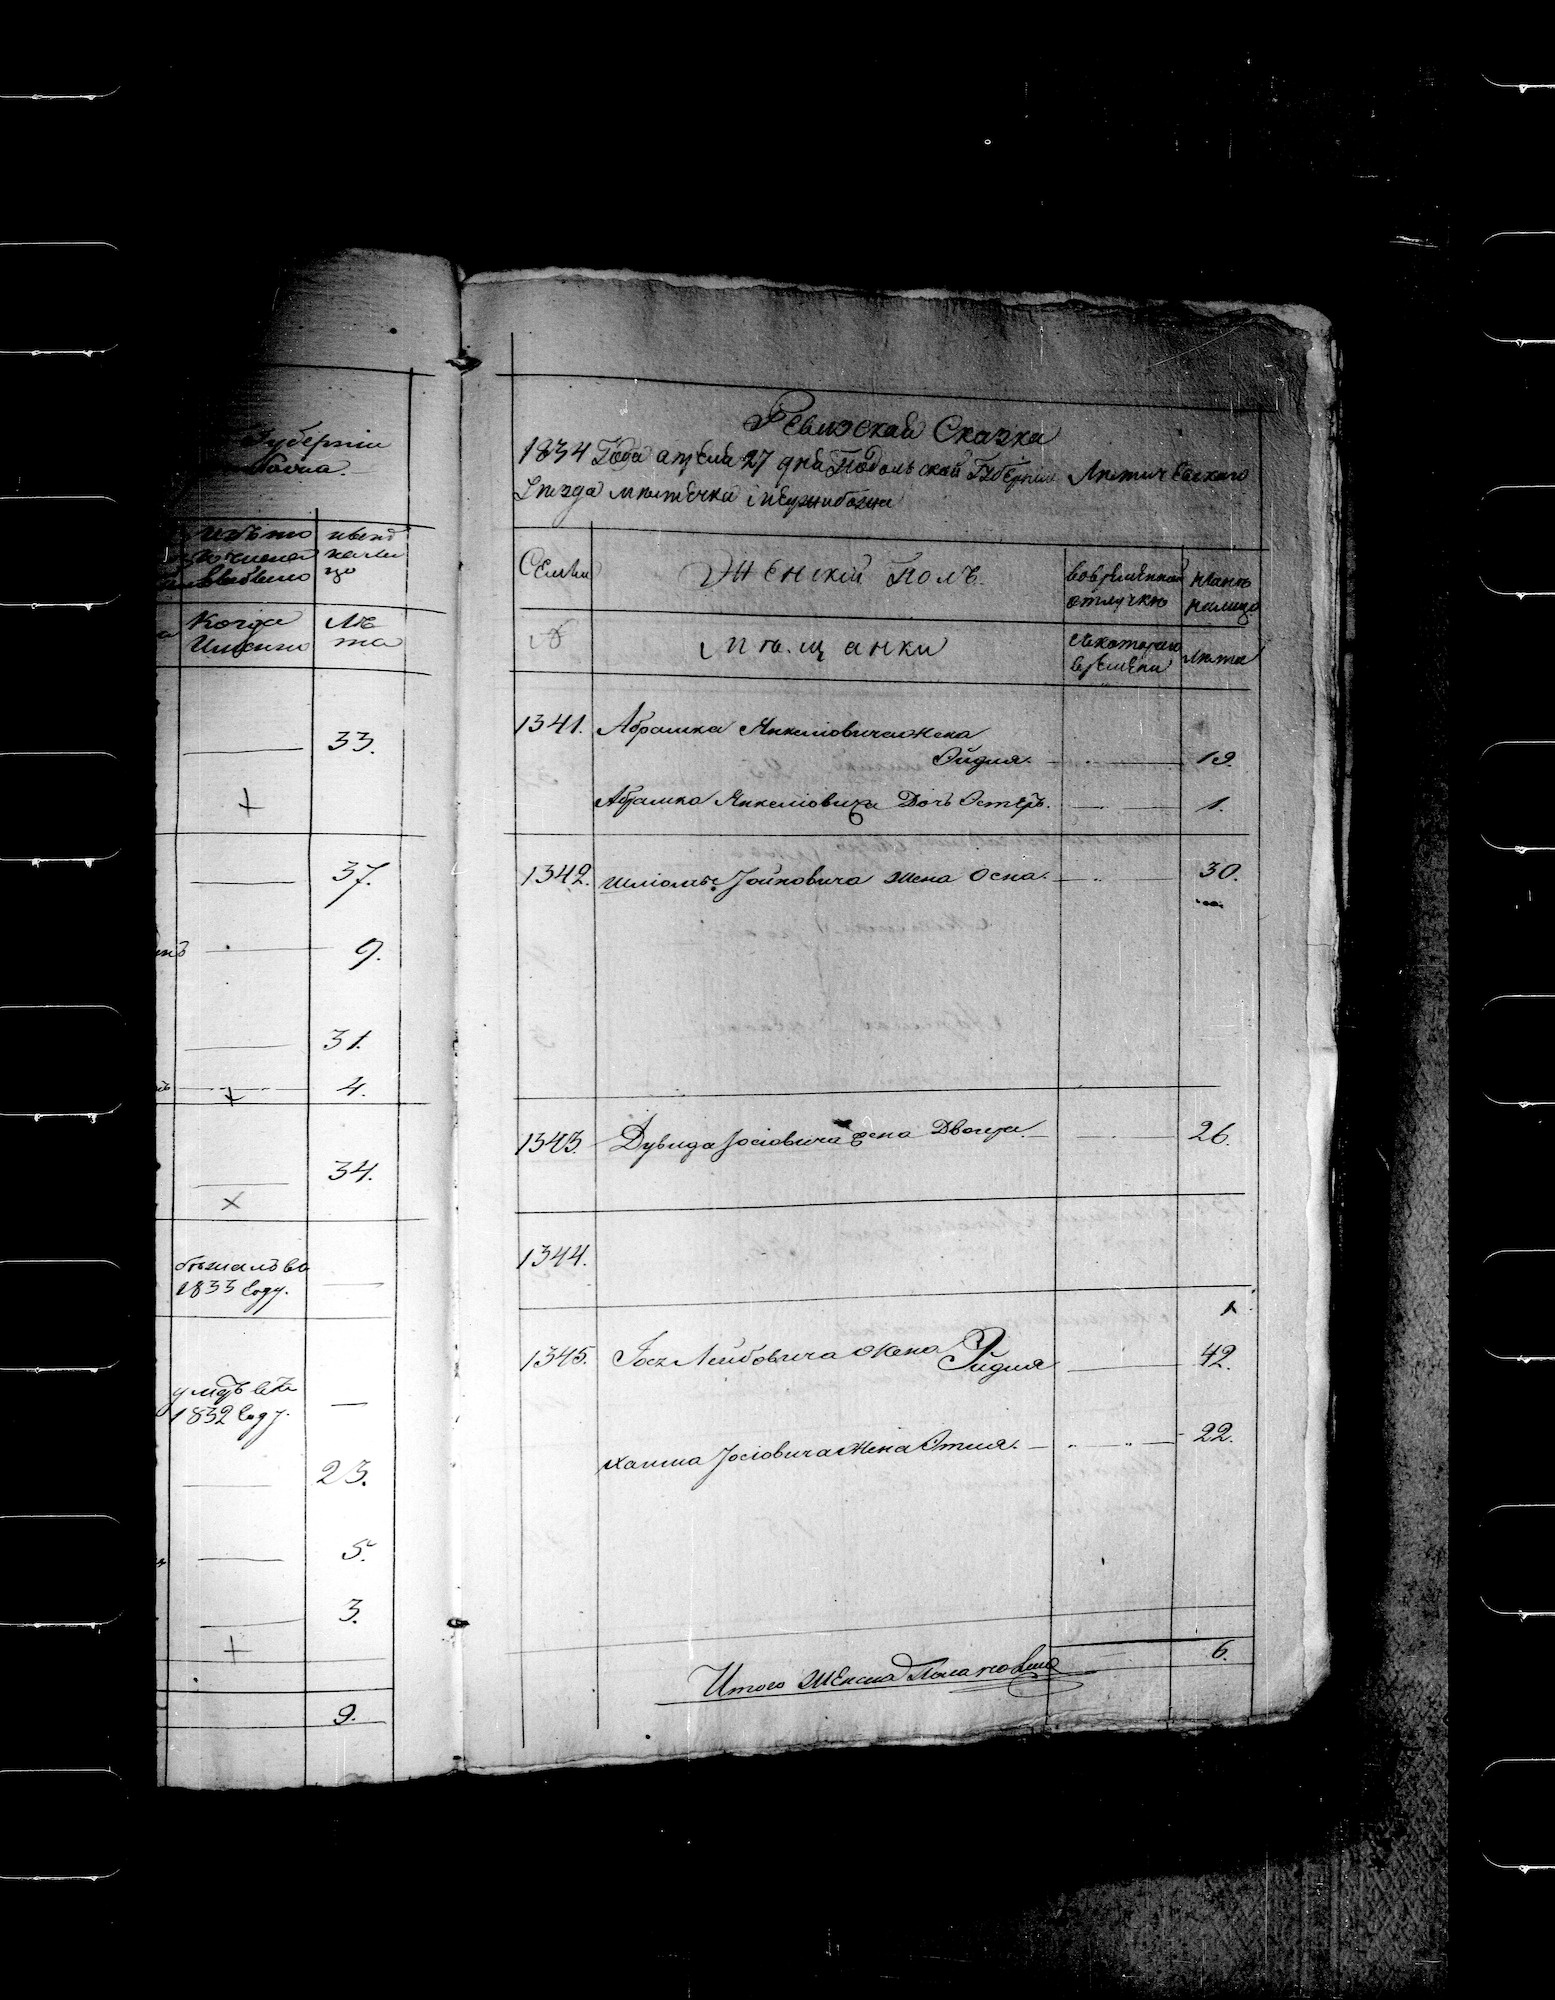 Губерніи
Когда
Именно
Лѣ
та
33.
37.
9.
31.
4.
34.
бѣжалъ въ
1833 году.
умръ въ
1832 году.
23.
5.
3.
9.
Ревизская Сказка
1834 Года апреля 27 дня Подольской Губерніи Литичевскаго
Уезда местечка Межибожа
Семьи
Женскій Полъ.
вовременной
отлучки
ныне
налицо
№
Мѣщанки
съкотораго
времени
лѣта
1341. Абрамка Янкеліовича жена
Эйдля. 19.
Абрамка Янкеліовича Дочь Эстеръ. 1.
1342. Шліомы Іойновича жена Осна. 30.
1343. Дувида Іосіовича жена Двойра. 26.
1344.
1345. Іося Лейбовича жена Эйдля 42.
Хаима Іосіовича жена Этля. 22.
Итого женска Пола наLицо 6.